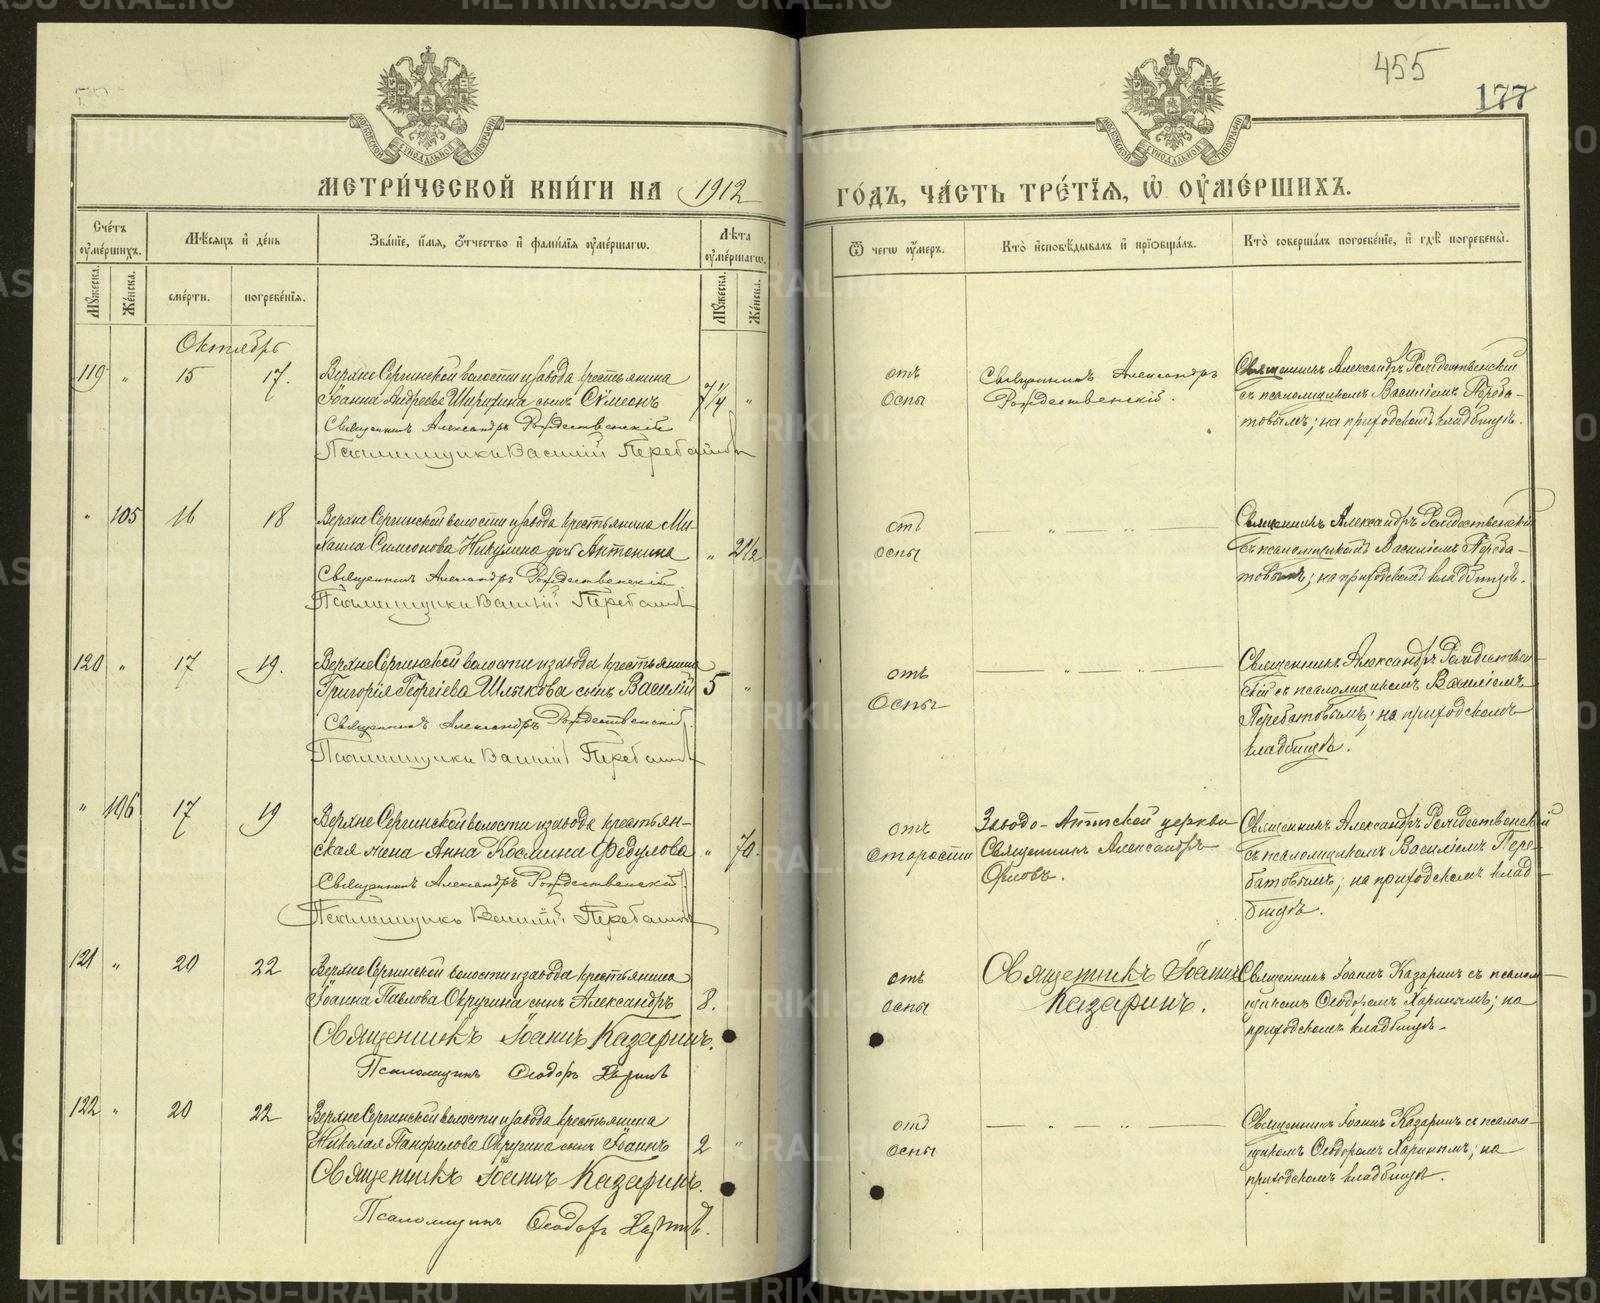 455
177
МЕТРИ́ЧЕСКОЙ КНИ́ГИ НА 1912
ГО́ДЪ, ЧА́СТЬ ТРЕ́ТІѦ, Ѡ ОУМЕ́РШИХЪ.
Сче́тъ оумершихъ.
Мѣсяцъ и де́нь
Зва́ніе, и́мя, о́тчество и фами́лія оуме́ршагѡ.
Лѣта оуме́ршагѡ.
Ѿ чегѡ оу́меръ.
Кто̀ исповѣ́дывалъ и пріѡбща́лъ.
Кто̀ соверша́лъ погребе́ніе, и гдѣ̀ погребены̀.
Мꙋжеска.
Же́нска.
сме́рти.
погребе́нія.
Мꙋжеска.
Же́нска.
Октябрь
119 " 15 17. Верхне Сергинской волости и завода крестьянина
Іоанна Андреева Ширихина сынъ Сѵмеонъ 7/4 "
Священникъ Александръ Рождественскій
Псаломщикъ Василій
отъ
Оспы
Священникъ Александръ
Рождественскій.
Священникъ Александръ Рождественскій
съ псаломщикомъ Василіемъ Переба-
товымъ; на приходскомъ кладбищѣ.
" 105 16 18 Верхне Сергинской волости и завода крестьянина Ми-
хаила Симеонова Никулина дочь Антонина " 2 1/2
Священникъ Александръ Рождественскій
Псаломщикъ Василій
отъ
Оспы
— " — " —
Священникъ Александръ Рождественскій
съ псаломщикомъ Василіемъ Переба-
товымъ; на приходскомъ кладбищѣ.
120 " 17 19. Верхне Сергинской волости и завода крестьянина
Григорія Георгіева Шлыкова сынъ Василій 5 "
Священникъ Александръ Рождественскій.
Псаломщикъ Василій
отъ
Оспы
— " — " —
Священникъ Александръ Рождествен-
скій съ псаломщикомъ Василіемъ
Перебатовымъ; на приходскомъ
кладбищѣ.
" 106 17 19 Верхне Сергинской волости и завода крестьян-
ская жена Анна Космина Федулова " 70.
Священникъ Александръ Рождественскій.
Псаломщикъ Василій
отъ
старости
Заводо- церкви
Священникъ Александръ
Орловъ.
Священникъ Александръ Рождественскій
съ псаломщикомъ Василіемъ Пере-
батовымъ; на приходскомъ клад-
бищѣ.
121 " 20 22 Верхне Сергинской волости и завода крестьянина
Іоанна Павлова Окружина сынъ Александръ 8.
Священникъ Іоаннъ Казаринъ.
Псаломщикъ Ѳеодоръ
отъ
оспы
Священникъ Іоаннъ
Казаринъ.
Священникъ Іоаннъ Казаринъ съ псалом-
щикомъ Ѳеодоромъ Харинымъ; на
приходскомъ кладбищѣ.
122 " 20 22 Верхне Сергинской волости и завода крестьянина
Николая Панфилова Окружина сынъ Іоаннъ 2 "
Священникъ Іоаннъ Казаринъ.
Псаломщикъ Ѳеодоръ
отъ
оспы
— " — " —
Священникъ Іоаннъ Казаринъ съ псалом-
щикомъ Ѳеодоромъ Харинымъ; на
приходскомъ кладбищѣ.
METRIKI.GASO-URAL.RU